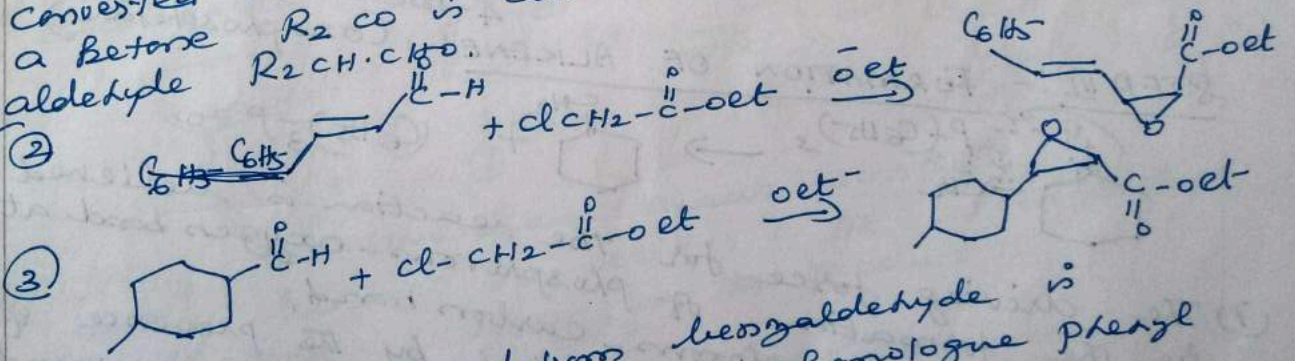 a Ketone R2 CO is
aldehyde R2CH.CHO.
② C6H5 C-H O + ClCH2-C-oet O ōet C6H5 C-oet O O
③ C-H O + Cl-CH2-C-oet O oet- O C-oet O
benzaldehyde is
homologue phenyl